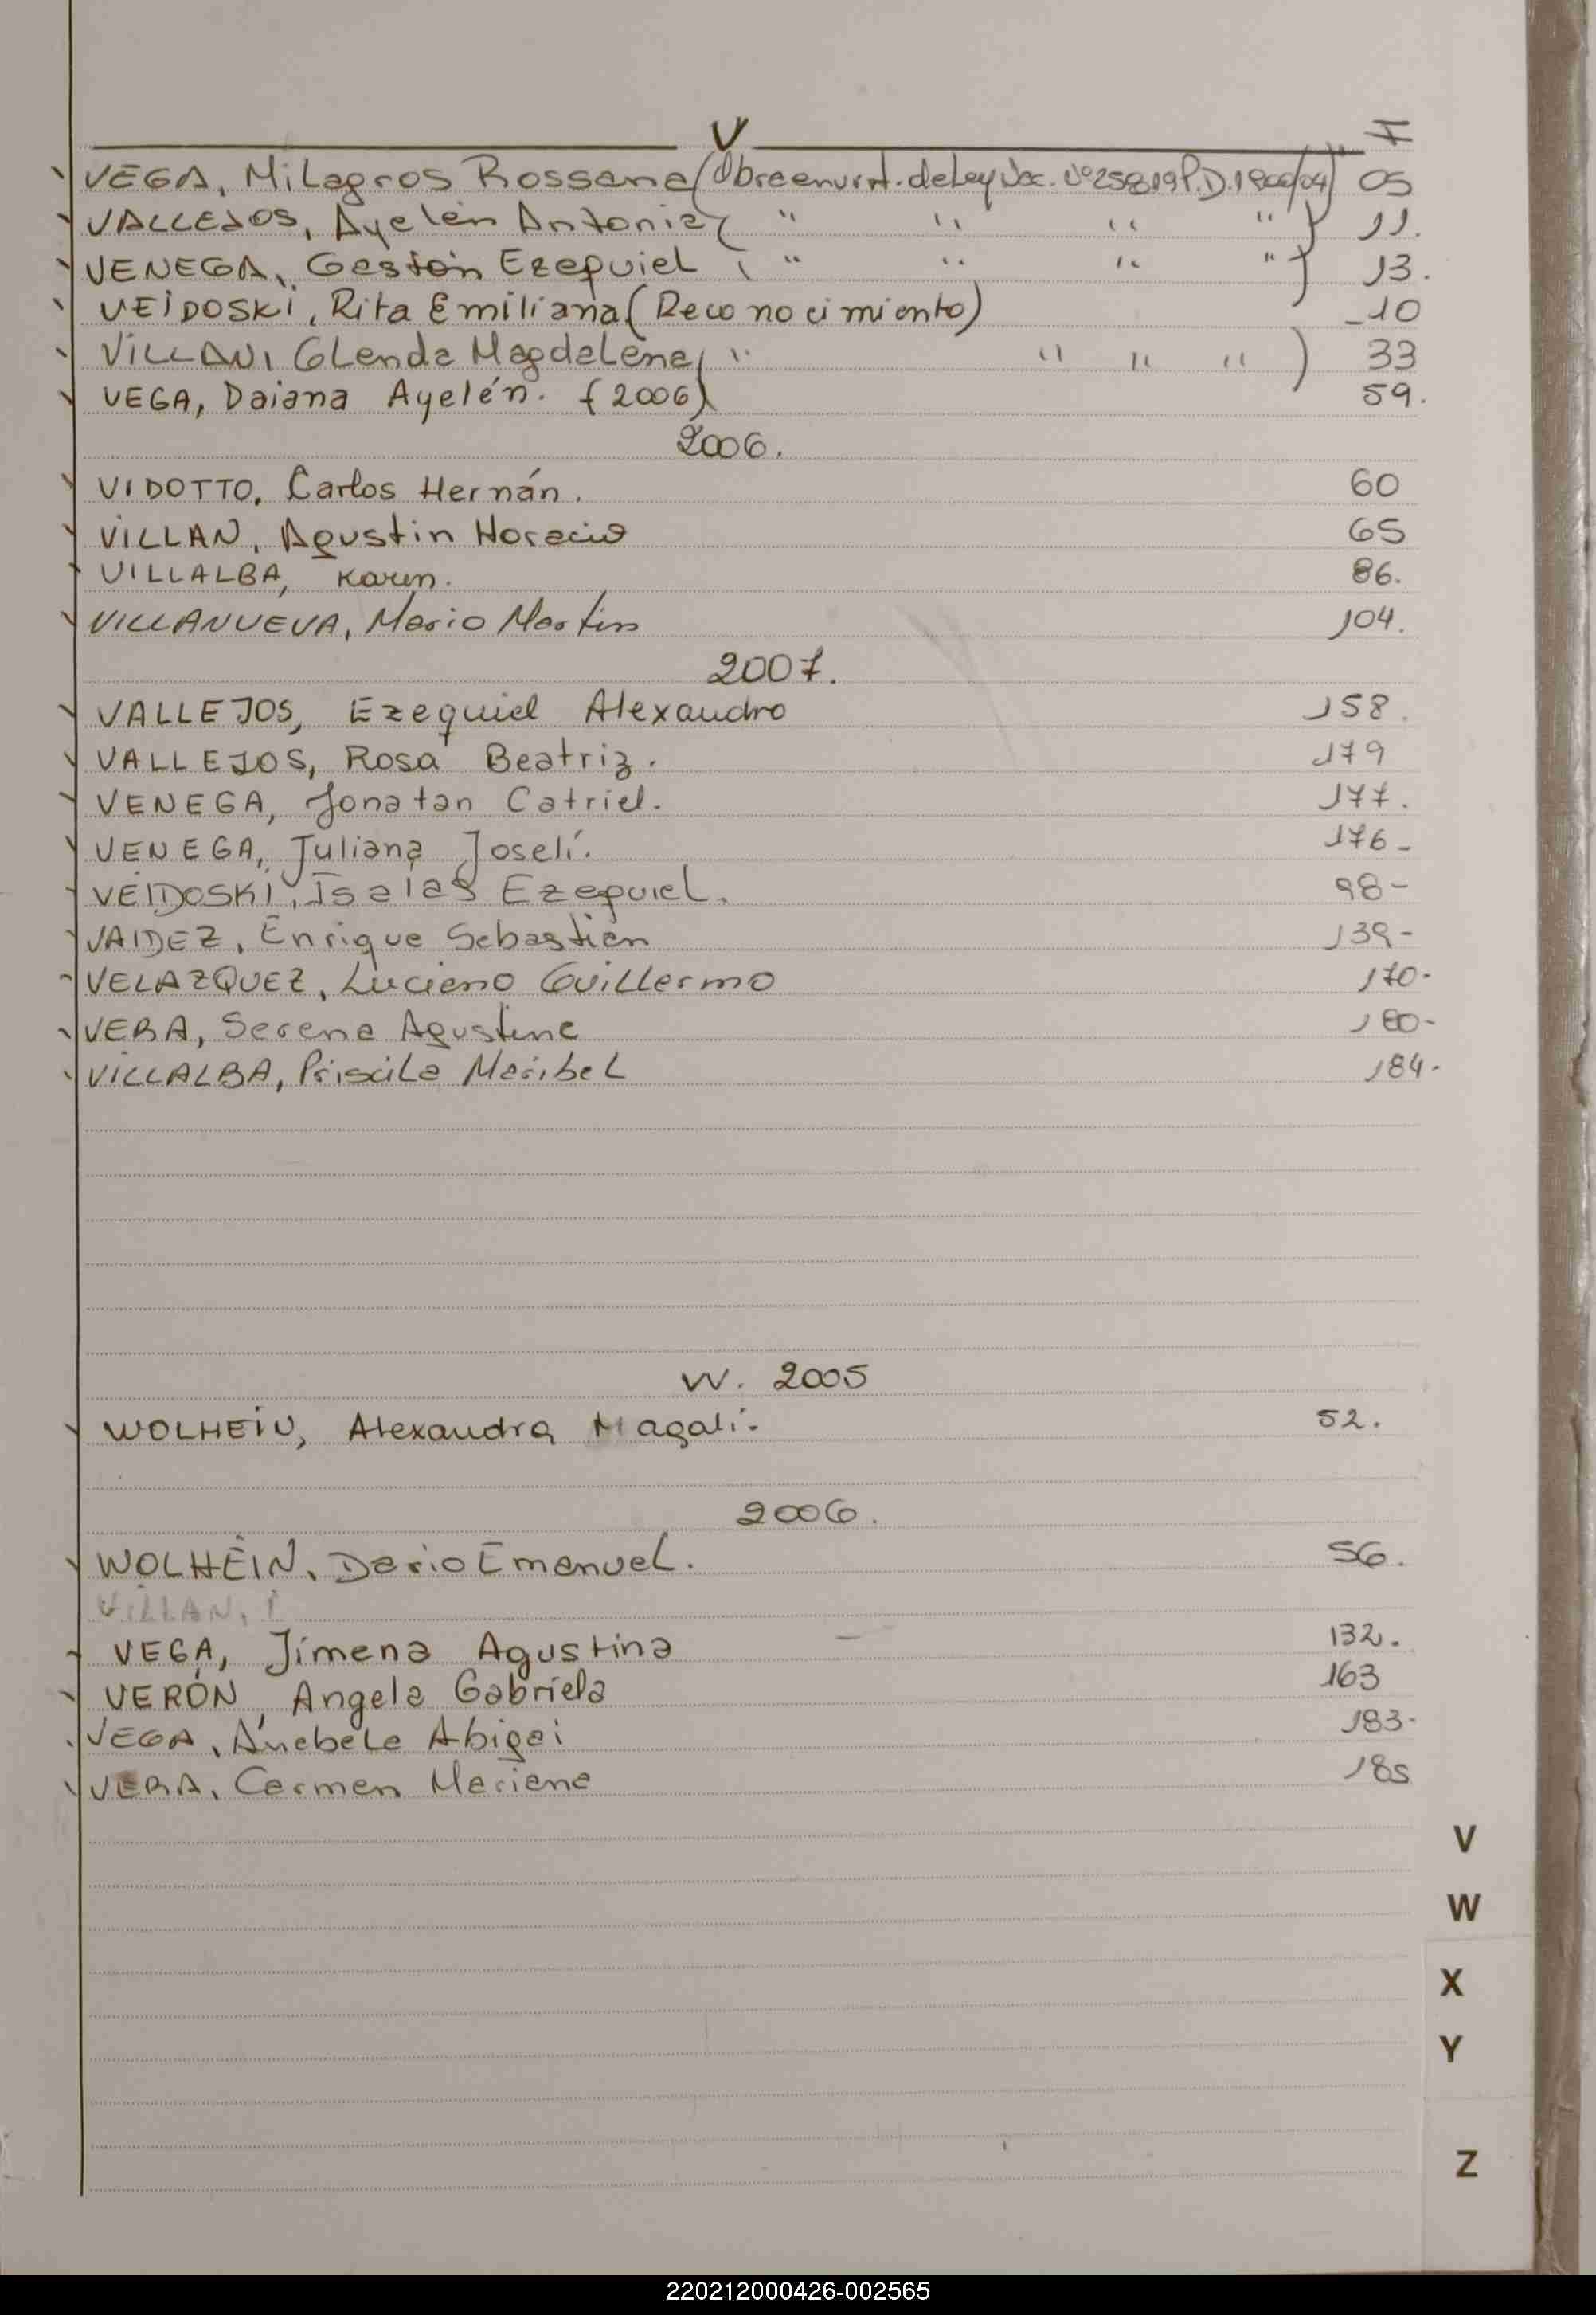 V F
VEGA, Milagros Rossana (Obreenvirt. de Ley Nac. Nº 25819 P.D. 1800/04) 05
VALLEJOS, Ayelén Antonia ( " " " " ) 11.
VENEGA, Gastón Ezequiel ( " " " " ) 13.
VEIDOSKI, Rita Emiliana (Reconocimiento) _10
VILLAN, Glenda Magdalena ( " " " " ) 33
VEGA, Daiana Ayelén. (2006) 59.
2006.
VIDOTTO, Carlos Hernán. 60
VILLAN, Agustin Horacio 65
VILLALBA, Karen. 86.
VILLANUEVA, Mario Martin 104.
2007.
VALLEJOS, Ezequiel Alexandro 158.
VALLEJOS, Rosa Beatriz. 179
VENEGA, Jonatan Catriel. 177.
VENEGA, Juliana Joselí. 176-
VEIDOSKI, Isaias Ezequiel. 98-
VAIDEZ, Enrique Sebastian 139-
VELAZQUEZ, Luciano Guillermo 170-
VERA, Serena Agustina 180-
VILLALBA, Priscila Maribel 184-
W. 2005
WOLHEIN, Alexandra Magali. 52.
2006.
WOLHEIN, Dario Emanuel. 56.
VILLAN, I
VEGA, Jimena Agustina 132.
VERÓN, Angela Gabriela 163
VEGA, Anebela Abigai 183-
VERA, Carmen Mariana 185
V
W
X
Y
Z
220212000426-002565